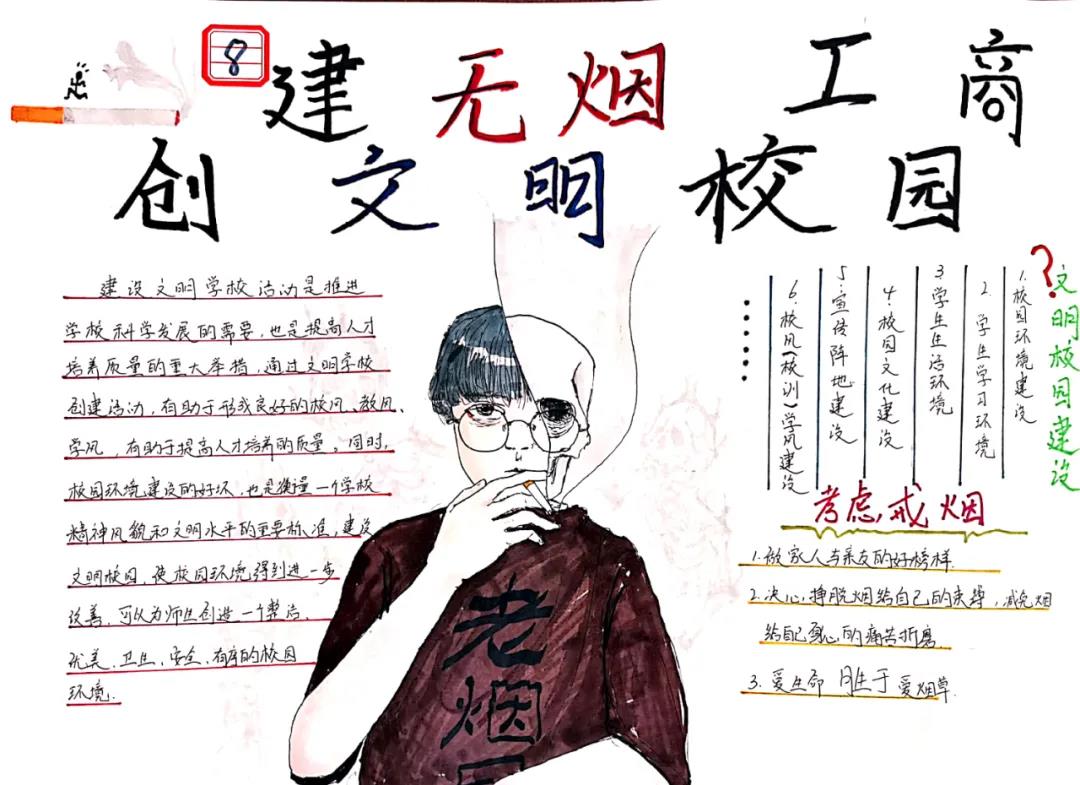 8
建无烟工商
创文明校园
建设文明学校活动是推进
学校科学发展的需要,也是提高人才
培养质量的重大举措,通过文明学校
创建活动,有助于形成良好的校风、教风、
学风,有助于提高人才培养的质量。同时,
校园环境建设的好坏,也是衡量一个学校
精神风貌和文明水平的重要标准,建设
文明校园,使校园环境得到进一步
改善,可以为师生创造一个整洁、
优美、卫生、安全、有序的校园
环境.
?文明校园建设
1.校园环境建设
2.学生学习环境
3.学生生活环境
4.校园文化建设
5.宣传阵地建设
6.校风(校训)学风建设
考虑戒烟
1.做家人与亲友的好榜样.
2.决心,挣脱烟给自己的束缚,减免烟
给自己身心的痛苦折磨.
3.爱生命 胜于 爱烟草.
老
烟